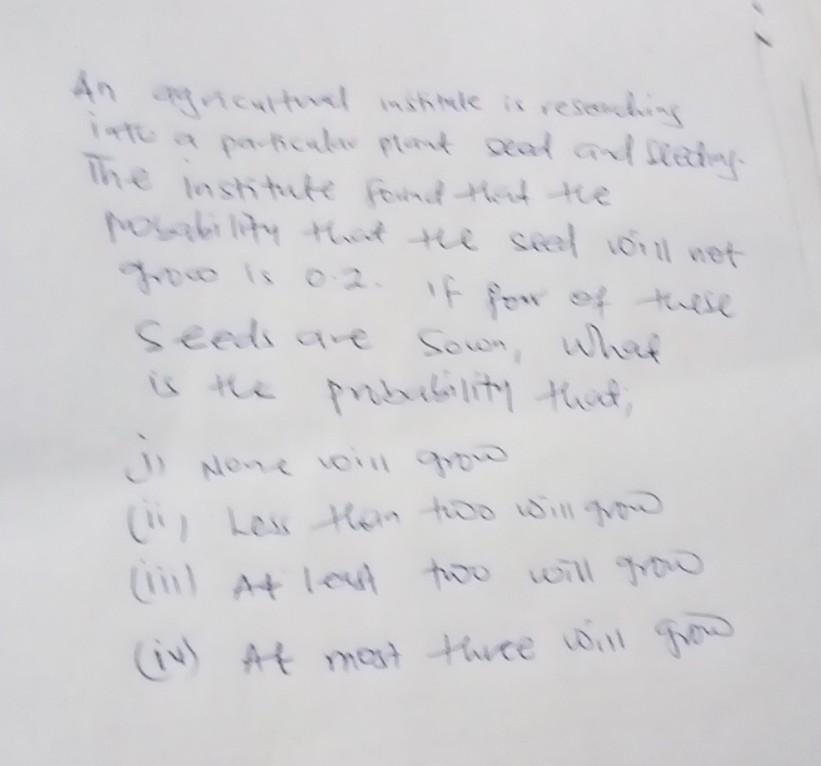 An agricultural institute is researching
into a particular plant seed and
The institute found that the
probability that the seed will not
grow is 0.2. if four of these
Seeds are Sown, What
is the probability that;
i) None will grow
(ii) Less than two will grow
(iii) At least two will grow
(iv) At most three will grow